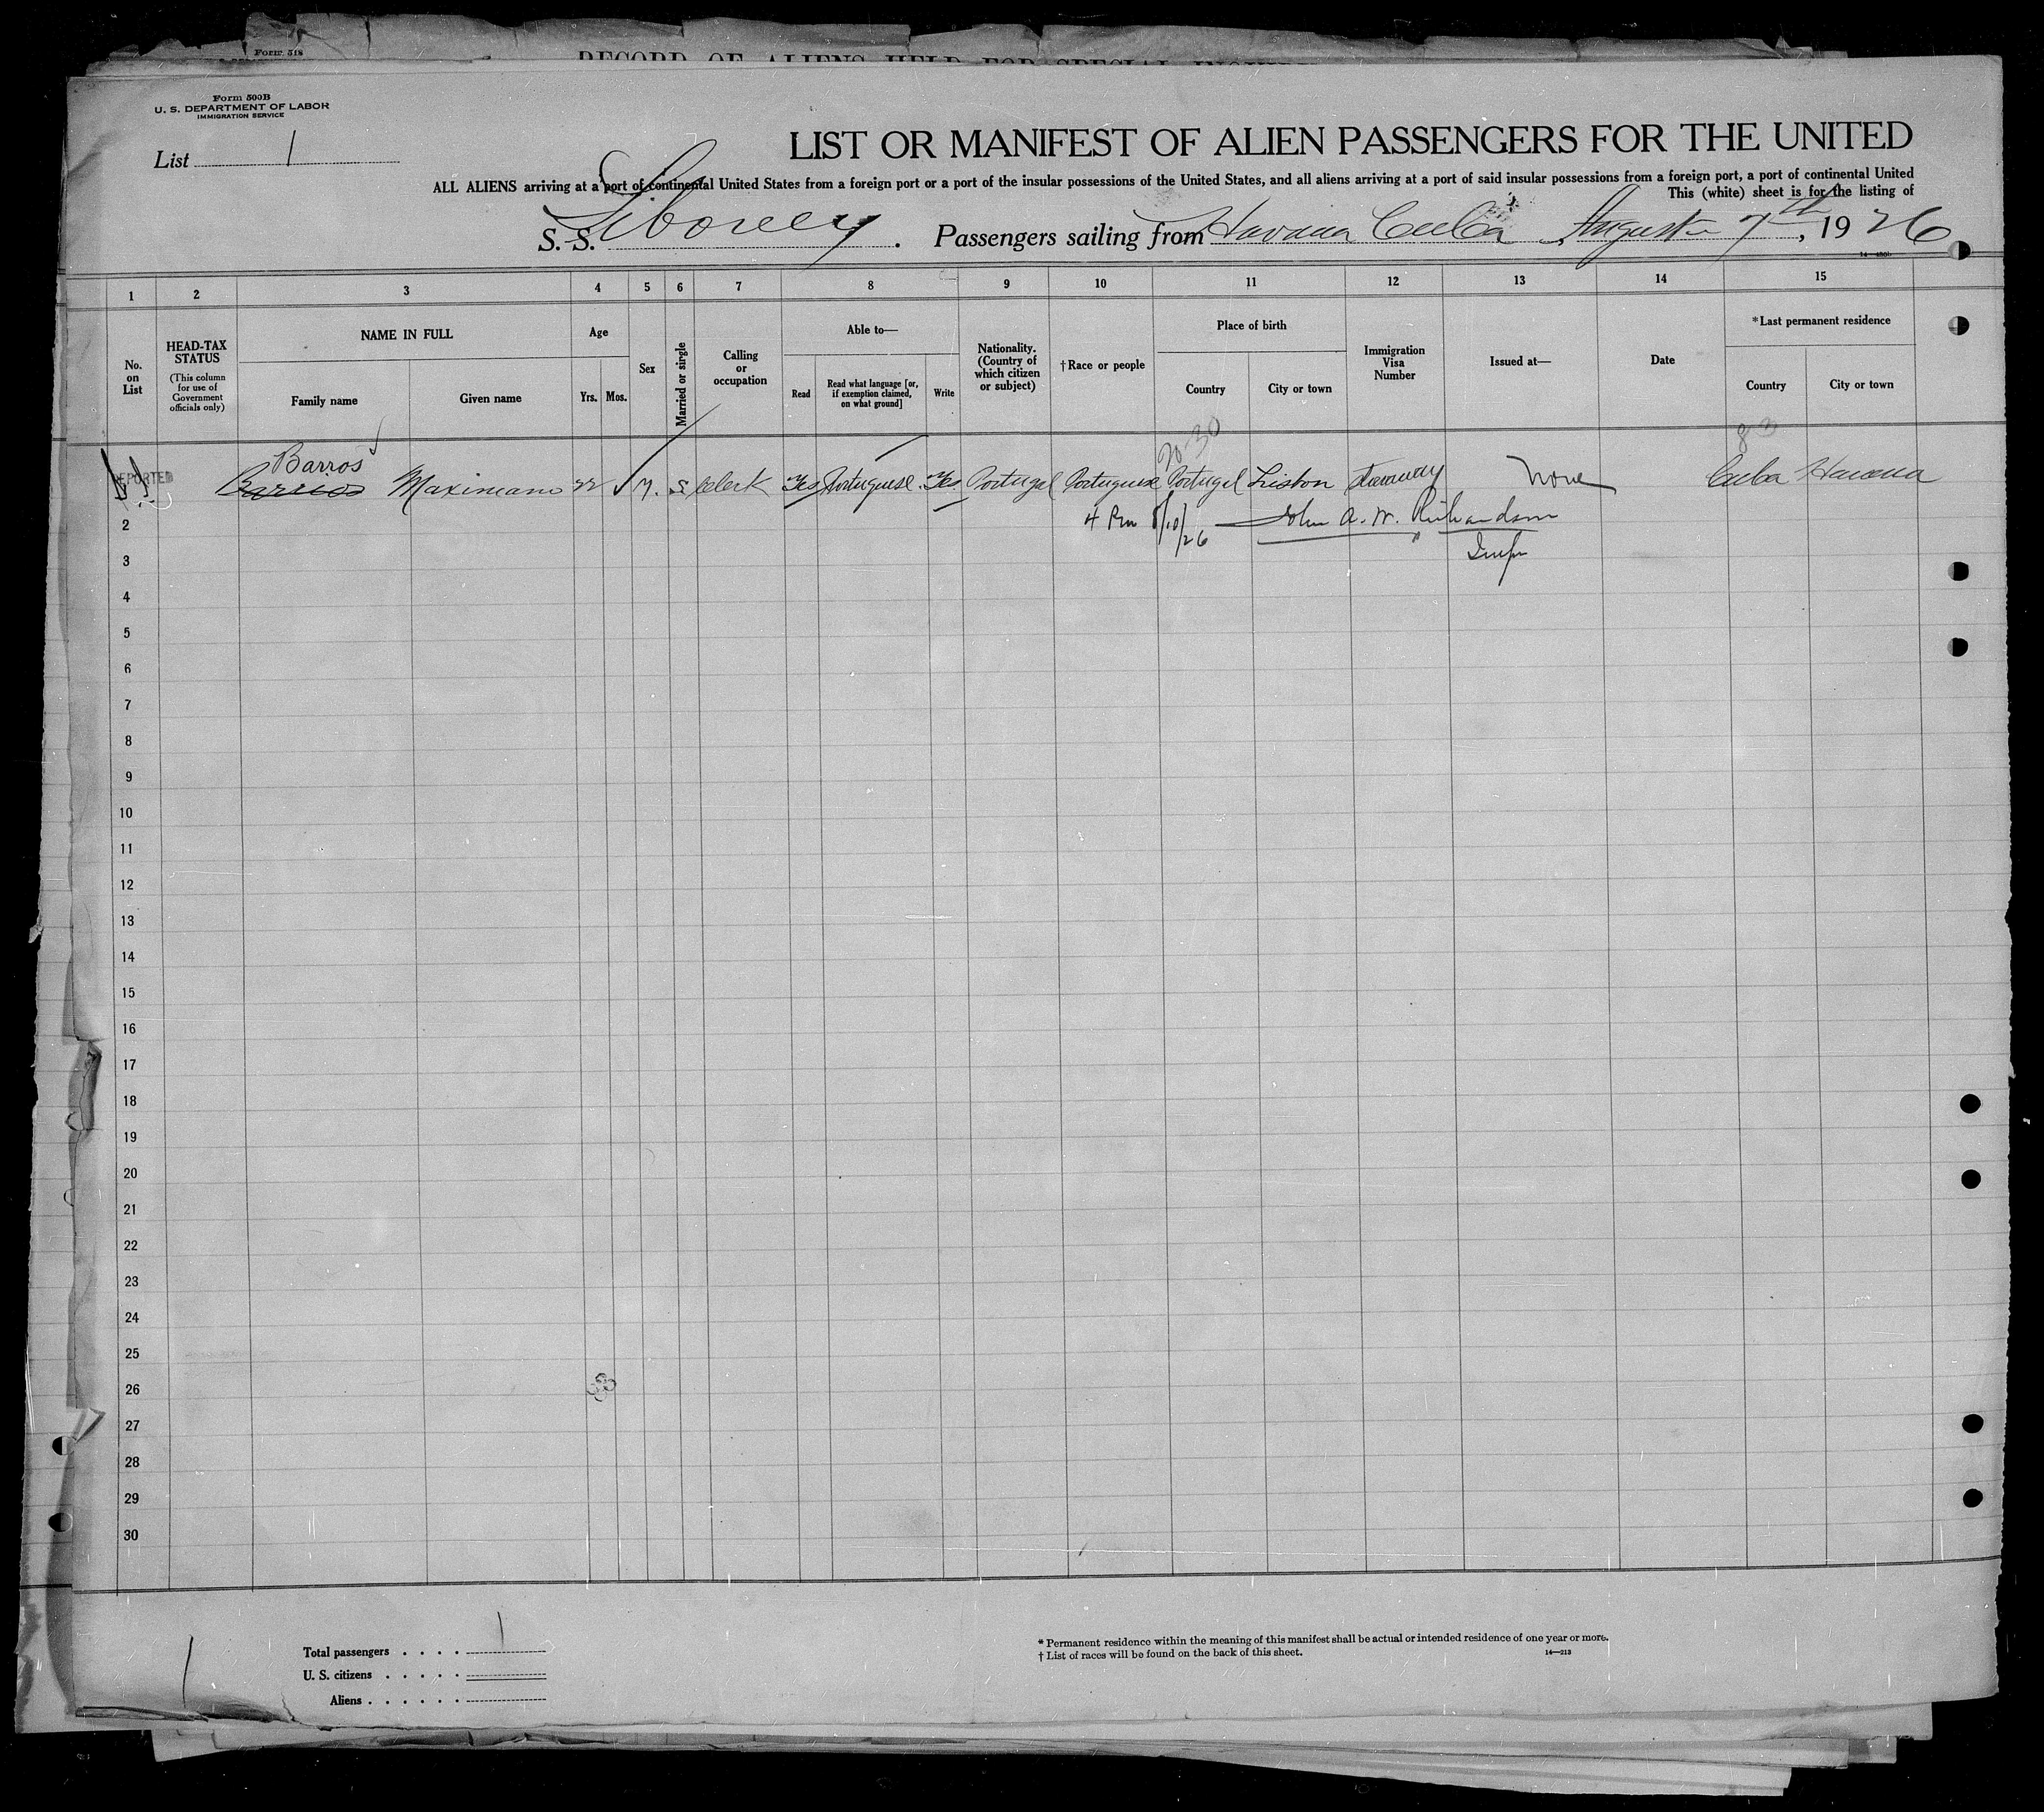 Form 518
RECORD OF ALIENS HELD FOR SPECIAL INQUIRY
Form 500B
U. S. DEPARTMENT OF LABOR
IMMIGRATION SERVICE
List 1
LIST OR MANIFEST OF ALIEN PASSENGERS FOR THE UNITED
ALL ALIENS arriving at a port of continental United States from a foreign port or a port of the insular possessions of the United States, and all aliens arriving at a port of said insular possessions from a foreign port, a port of continental United
This (white) sheet is for the listing of
S. S. Siboney. Passengers sailing from Havana Cuba, August 7th, 1926
1 2 3 4 5 6 7 8 9 10 11 12 13 14 15
No. on List
HEAD-TAX STATUS
(This column for use of Government officials only)
NAME IN FULL
Family name
Given name
Age
Yrs.
Mos.
Sex
Married or single
Calling or occupation
Able to—
Read
Read what language [or, if exemption claimed, on what ground]
Write
Nationality. (Country of which citizen or subject)
†Race or people
Place of birth
Country
City or town
Immigration Visa Number
Issued at—
Date
*Last permanent residence
Country
City or town
Barros
Barrios Maximiano 22 M. S Clerk Yes Portuguese Yes Portugal Portuguese Portugal Lisbon Stowaway None Cuba Havana
2 4 Pm 8/10/26 John A. W. Richardson
3 Insp
4
5
6
7
8
9
10
11
12
13
14
15
16
17
18
19
20
21
22
23
24
25
26
27
28
29
30
Total passengers . . . . 1
U. S. citizens . . . . .
Aliens . . . . . .
* Permanent residence within the meaning of this manifest shall be actual or intended residence of one year or more.
† List of races will be found on the back of this sheet.
14—213